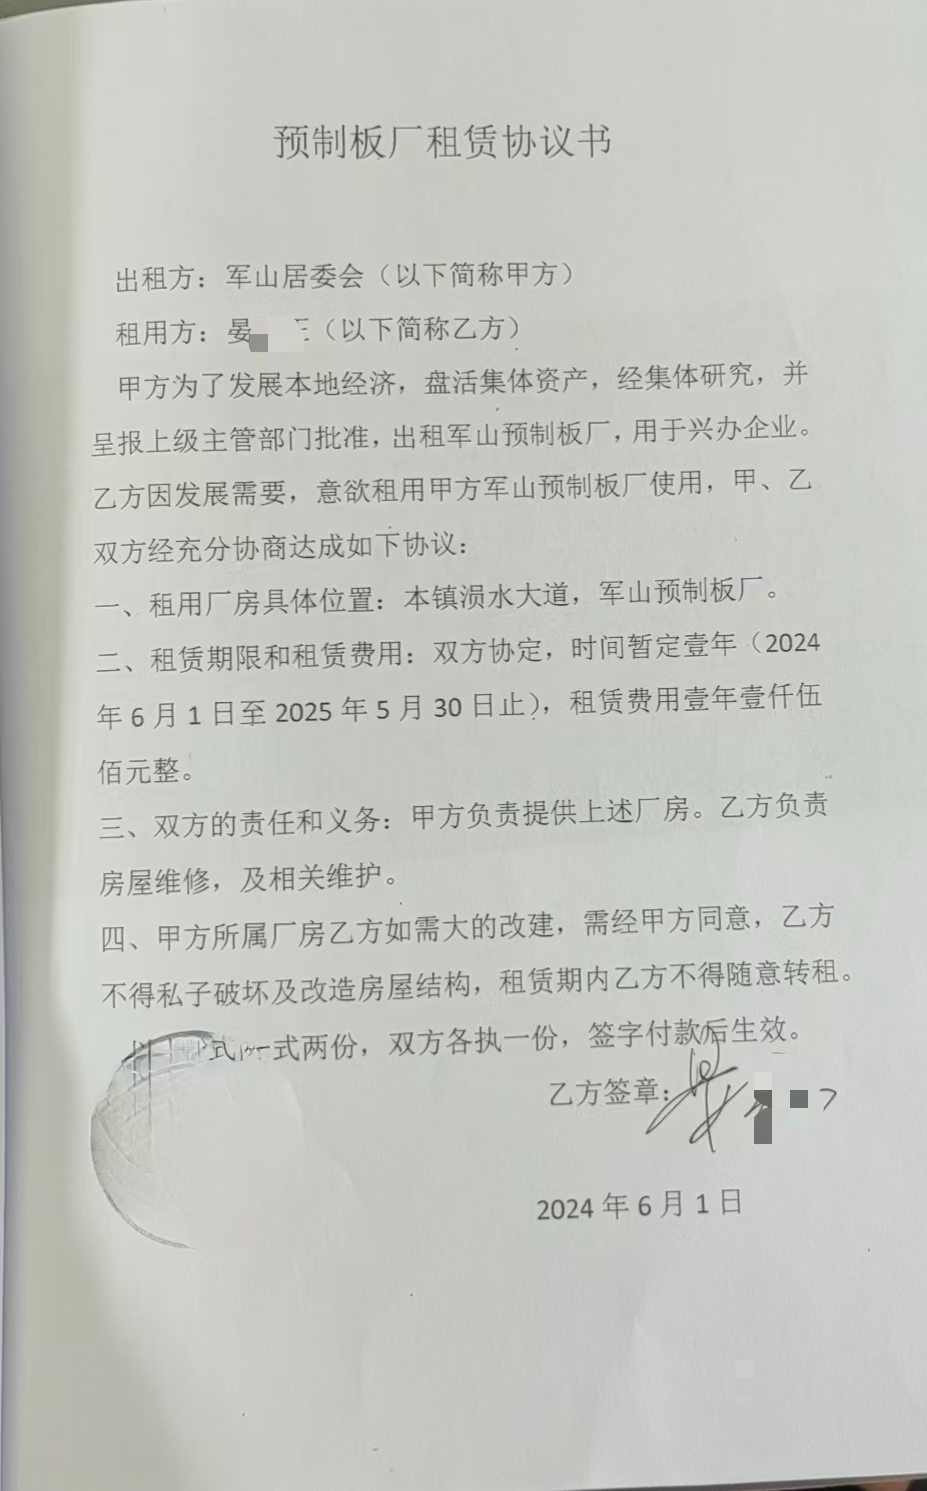 预制板厂租赁协议书
出租方：军山居委会（以下简称甲方）
租用方：晏（以下简称乙方）
甲方为了发展本地经济，盘活集体资产，经集体研究，并
呈报上级主管部门批准，出租军山预制板厂，用于兴办企业。
乙方因发展需要，意欲租用甲方军山预制板厂使用，甲、乙
双方经充分协商达成如下协议：
一、租用厂房具体位置：本镇涢水大道，军山预制板厂。
二、租赁期限和租赁费用：双方协定，时间暂定壹年（2024
年 6 月 1 日至 2025 年 5 月 30 日止），租赁费用壹年壹仟伍
佰元整。
三、双方的责任和义务：甲方负责提供上述厂房。乙方负责
房屋维修，及相关维护。
四、甲方所属厂房乙方如需大的改建，需经甲方同意，乙方
不得私子破坏及改造房屋结构，租赁期内乙方不得随意转租。
式两份，双方各执一份，签字付款后生效。
乙方签章：
2024 年 6 月 1 日